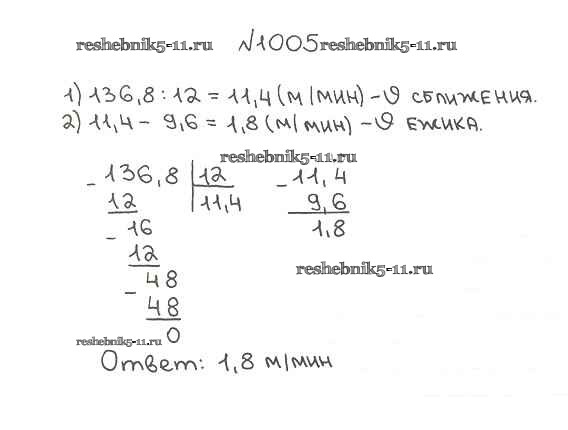 reshebnik5-11.ru №1005 reshebnik5-11.ru
1) 136,8 : 12 = 11,4 (м/мин) – υ сближения.
2) 11,4 – 9,6 = 1,8 (м/мин) – υ ежика.
reshebnik5-11.ru
- 136,8 | 12 - 11,4
12 11,4 9,6
- 16 1,8
12
- 48 reshebnik5-11.ru
48
reshebnik5-11.ru 0
Ответ: 1,8 м/мин